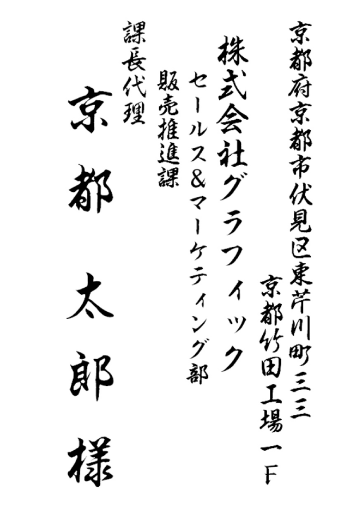 京都府京都市伏見区東芹川町三三
京都竹田工場一F
株式会社グラフィック
セールス&マーケティング部
販売推進課
課長代理
京都 太郎 様